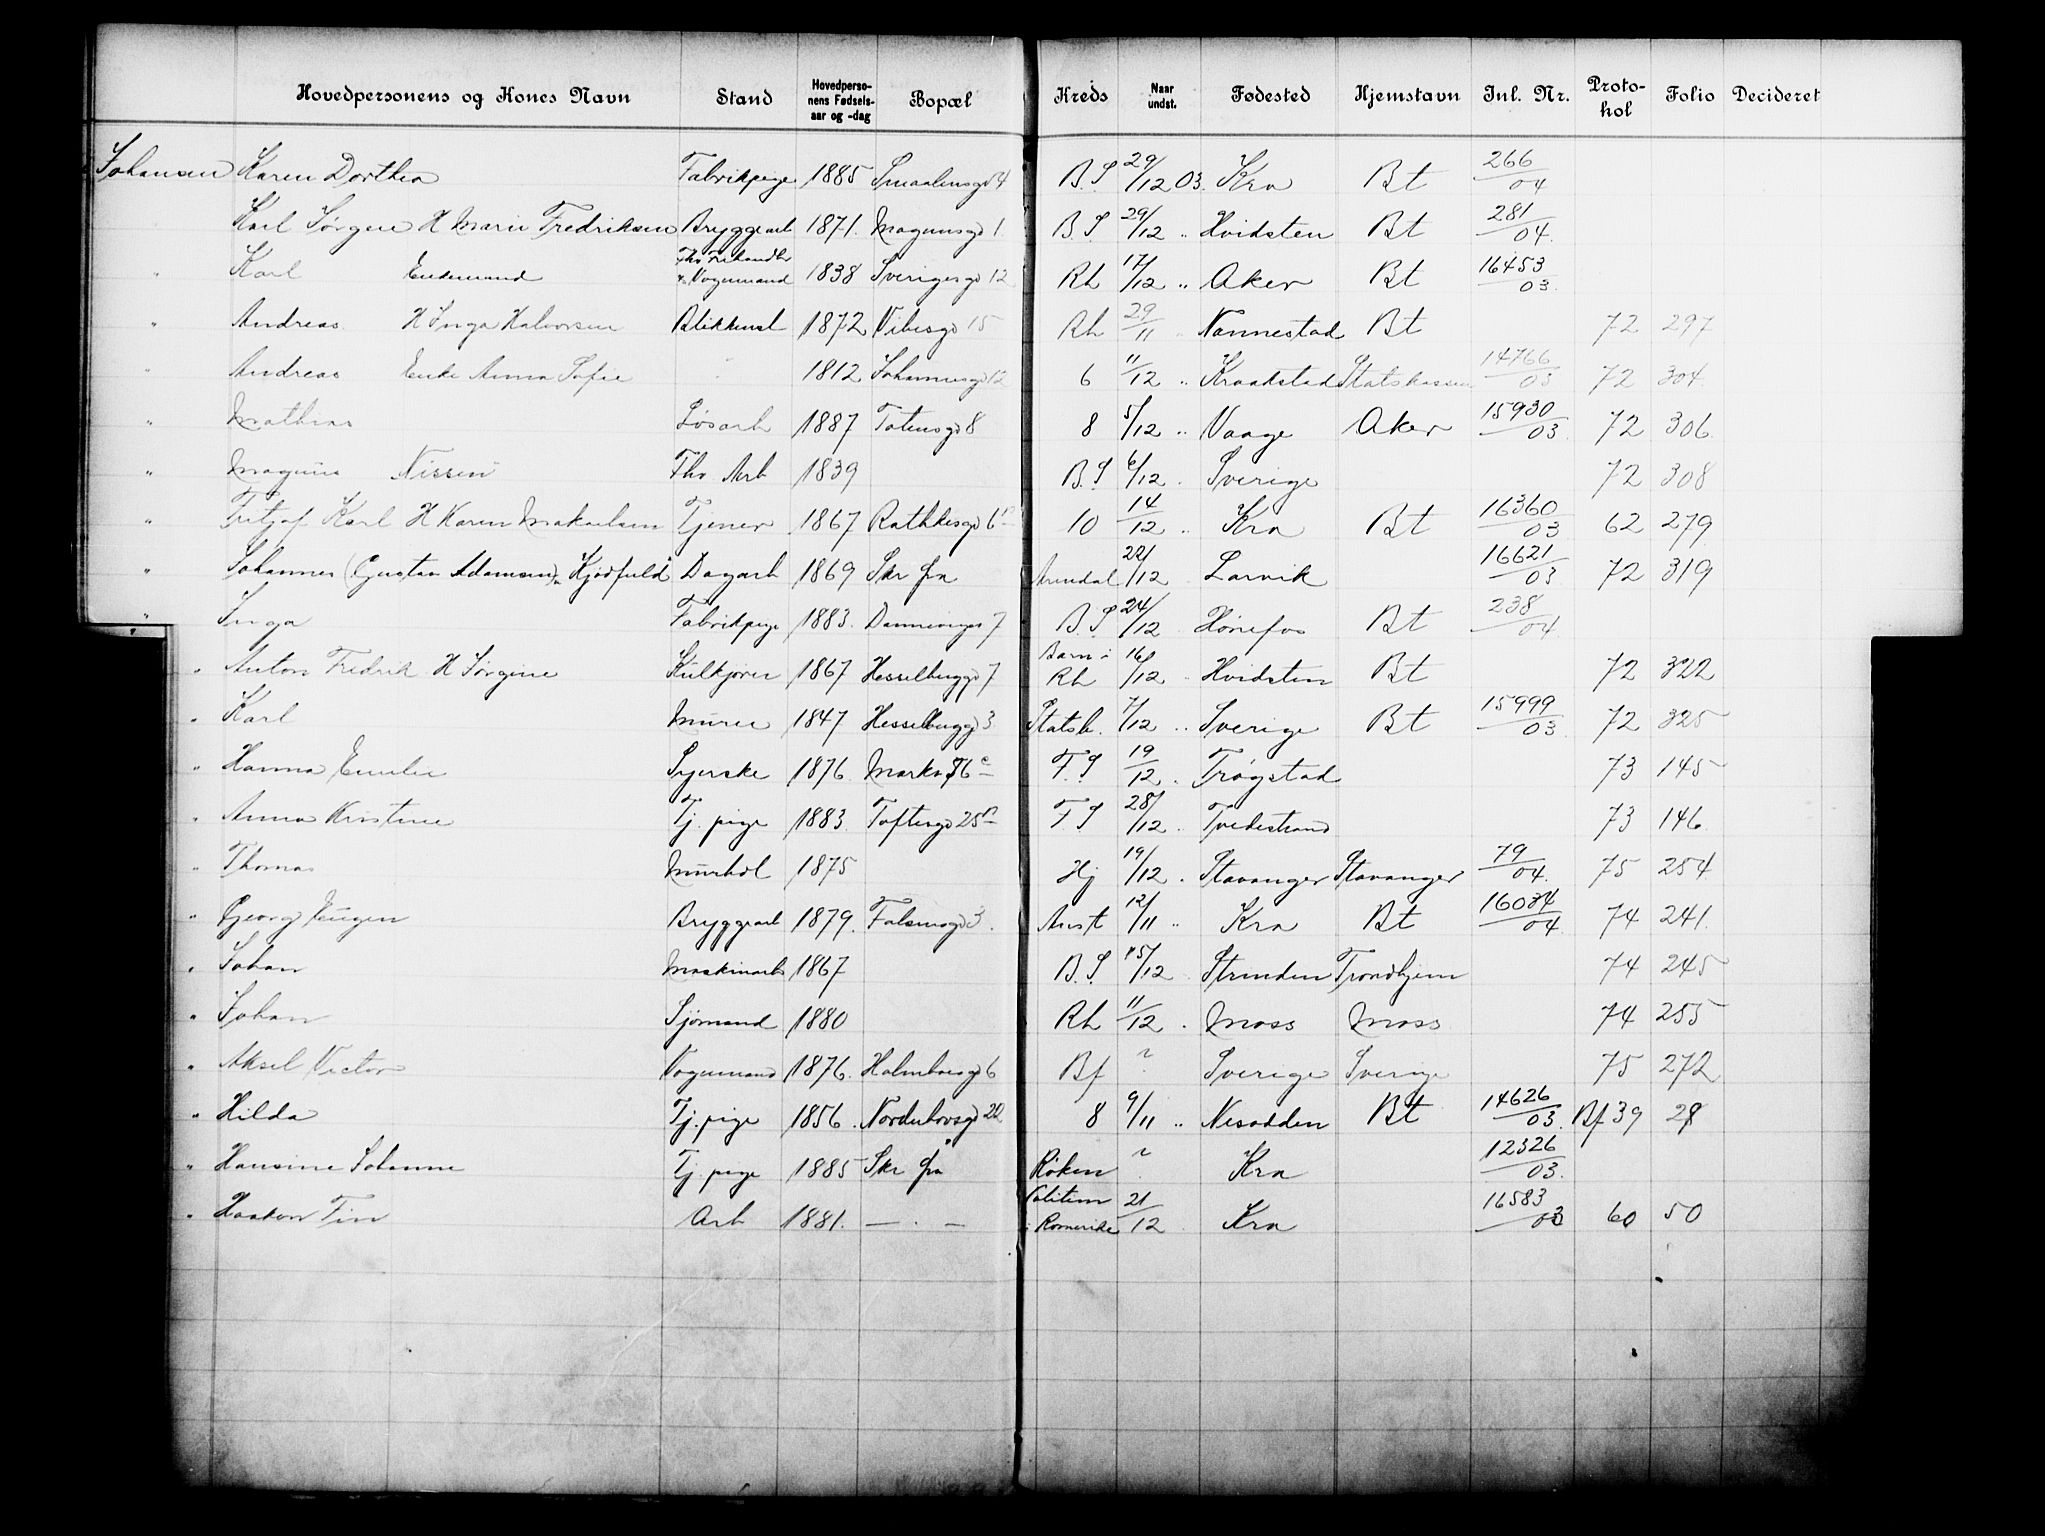 Hovedpersonens og Kones Navn Stand Hovedperso-nens Fødsels-aar og -dag Bopæl Kreds Naar undst. Fødested Hjemstavn Inl. Nr. Proto-kol Folio Decideret
Johansen Karen Dorthea Fabrikpige 1885 Smaalensgd 4 B.S 29/12 03. Kra Bt 266/04
Karl Jørgen H Marie Fredriksen Bryggearb 1871. Magnusgd 1 B.S 29/12 " Hvidsten Bt 281/04.
" Karl Enkemand Vognmand 1838 Sverigesgd 12 Rh 17/12 " Aker Bt 16453/03.
" Andreas H Inga Halvorsen Blikkensl 1872 Vibesgd 15 Rh 29/11 " Nannestad Bt 72 297
" Andreas Enke Anna Sofie " 1812 Johannesgd 12 6 11/12 " Kraakstad Statskassen 14766/03 72 304.
" Mathias Løsarb 1887 Totensgd 8 8 5/12 " Vaage Aker 15930/03. 72 306.
" Magnus Nissen Fhv Arb 1839 B.S 6/12 . Sverige 72 308
" Fritjof Karl H Karen Mikaelsen Tjener 1867 Rathkesgd 6 10 14/12 " Kra Bt 16360/03 62 279
" Johannes (Gustav Adamsen) Kjødfuld Dagarb 1869 Skr fra Arendal 22/12 Larvik 16621/03 72 319
" Inga Fabrikpige 1883. Dannevigs 7 B.S 24/12 Hønefos Bt 238/04.
" Anton Fredrik H Jørgine Kulkjører 1867 Hesselberggd 7 Barn i Rh 16/12 " Hvidsten Bt 72 322
" Karl Murer 1847 Hesselberggd 3 Statsb. 7/12 " Sverige Bt 15999/03. 72 325
" Hanna Emilie Syerske 1876. Markv 56 c F.S 19/12 . Trøgstad 73 145
" Anna Kristine Tj. pige 1883. Toftesgd 25 F S 28/12 . Tvedestrand 73 146.
" Thomas Murhdl 1875 Hj 19/12 . Stavanger Stavanger 79/04. 75 254.
" Georg Eugen Bryggearb 1879. Falsensgd 3. Anst 12/11 " Kra Bt 16034/04. 74 241.
" Johan Maskinarb 1867 B.S 15/12 . Strinden Trondhjem 74 245
" Johan Sjømand 1880 Rh 11/12 . Moss Moss 74 255
" Aksel Victor Vognmand 1876. Holmboesgd 6 Bf Sverige Sverige 75 272
" Hilda Tj. pige 1856. Norderhovsgd 22 8 9/11 " Nesodden Bt 14626/03. Bf 39 28
" Hansine Johanne Tj. pige 1885 Skr fra Røken Kra 12326/03.
" Haakon Fin Arb 1881. — " — Politim i Romerike 21/12 Kra 16583/03 60 50